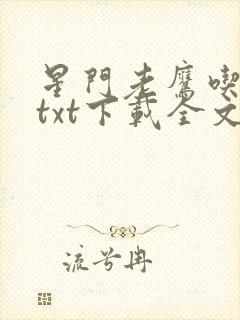 星門老鷹喫
txt下載全文
流兮冉